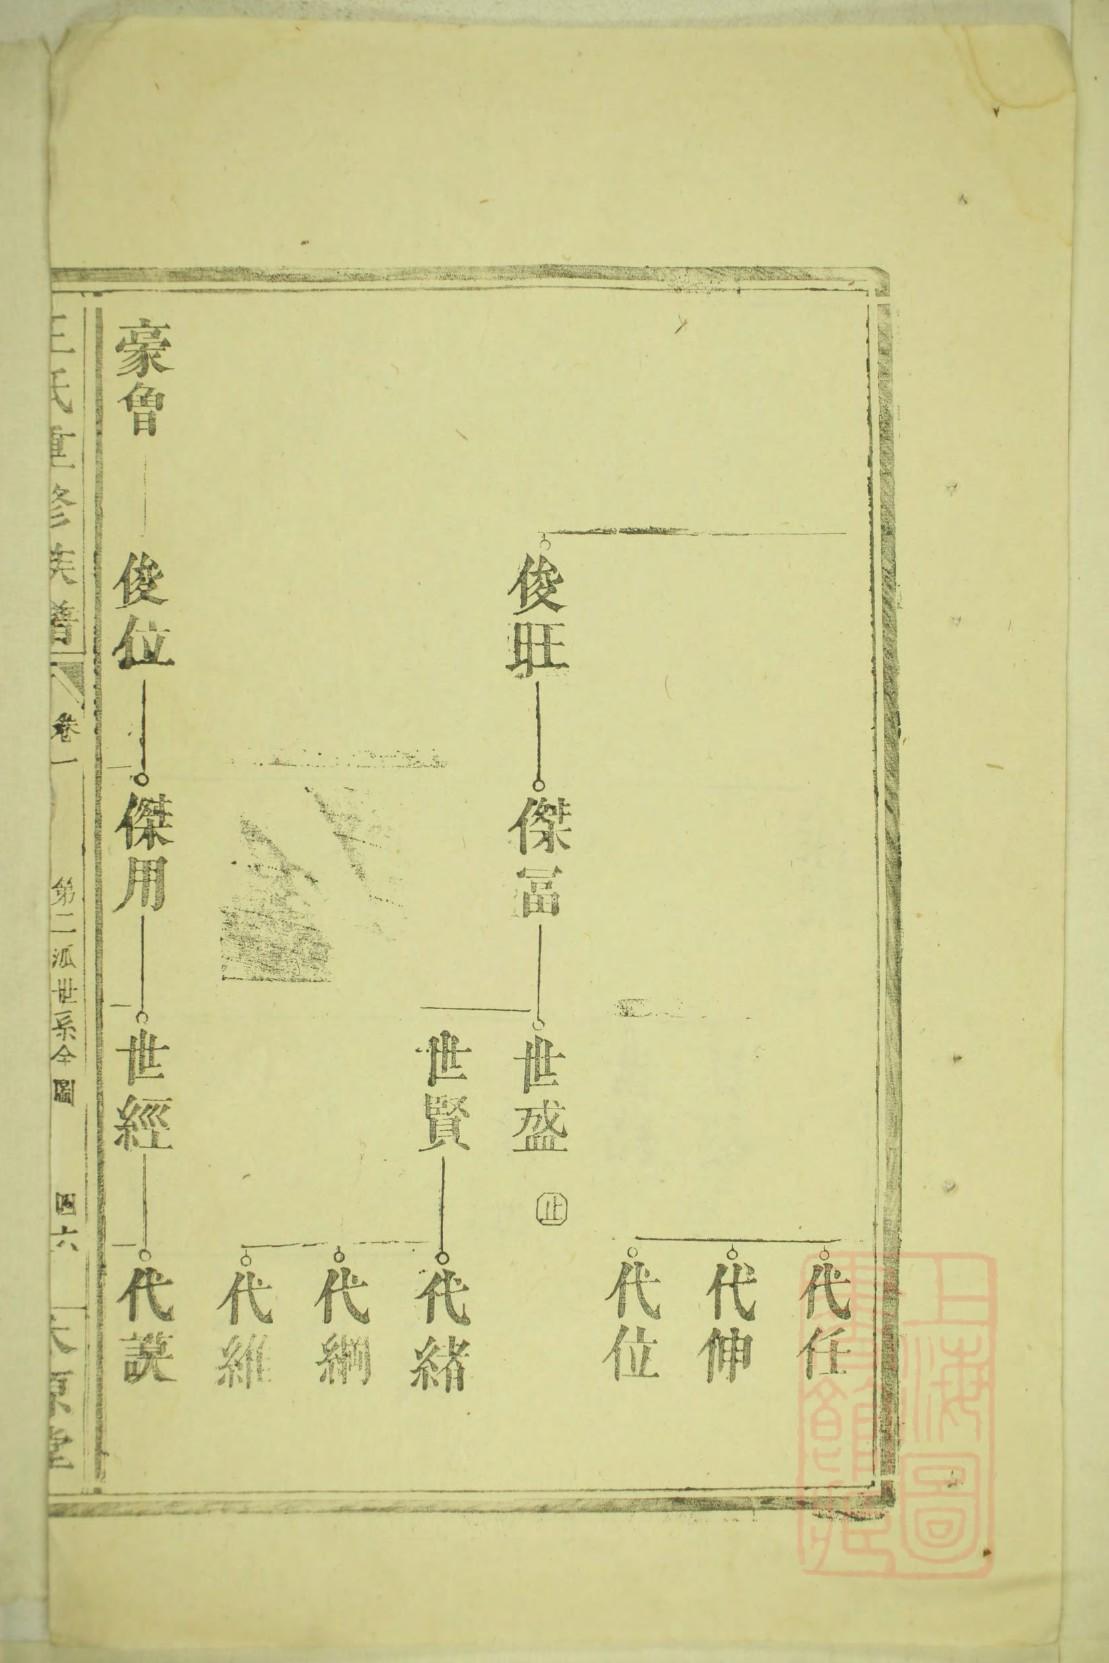 代任
代伸
代位
俊旺
傑冨
世盛
止
世賢
代緒
代綱
代維
豪魯
俊位
傑用
世經
代謨
王氏重修族譜
卷一
第二派世系全圖
四六
太原堂
上海圖
書館藏